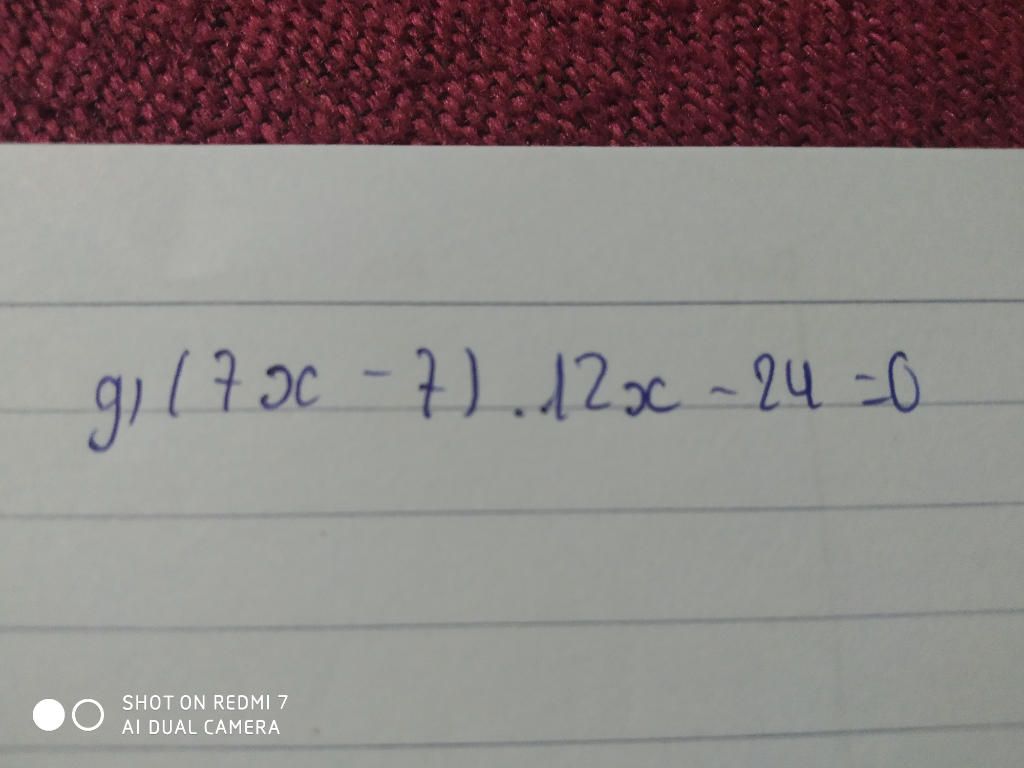 g) (7x - 7) . 12x - 24 = 0
SHOT ON REDMI 7
AI DUAL CAMERA